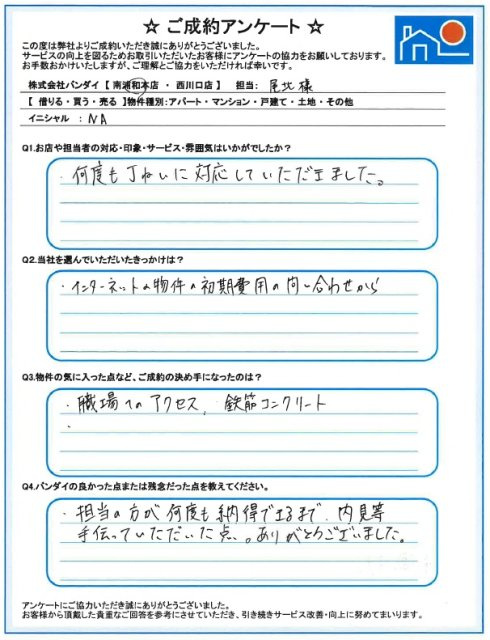 ☆ ご成約アンケート ☆
この度は弊社よりご成約いただき誠にありがとうございました。
サービスの向上を図るためお取引いただいたお客様にアンケートの協力をお願いしております。
お手数おかけいたしますが、ご理解とご協力をいただければ幸いです。
株式会社バンダイ 【 南浦和本店 ・ 西川口店 】 担当: 尾北様
【 借りる・買う・売る 】物件種別:アパート・マンション・戸建て・土地・その他
イニシャル : NA
Q1.お店や担当者の対応・印象・サービス・雰囲気はいかがでしたか?
・何度も丁ねいに対応していただきました。
Q2.当社を選んでいただいたきっかけは?
・インターネットの物件の初期費用の問い合わせから
Q3.物件の気に入った点など、ご成約の決め手になったのは?
・職場へのアクセス、鉄筋コンクリート
・
Q4.バンダイの良かった点または残念だった点を教えてください。
・担当の方が何度も納得できるまで、内見等
手伝っていただいた点、。ありがとうございました。
アンケートにご協力いただき誠にありがとうございました。
お客様から頂戴した貴重なご回答を参考にさせていただき、引き続きサービス改善・向上に努めてまいります。